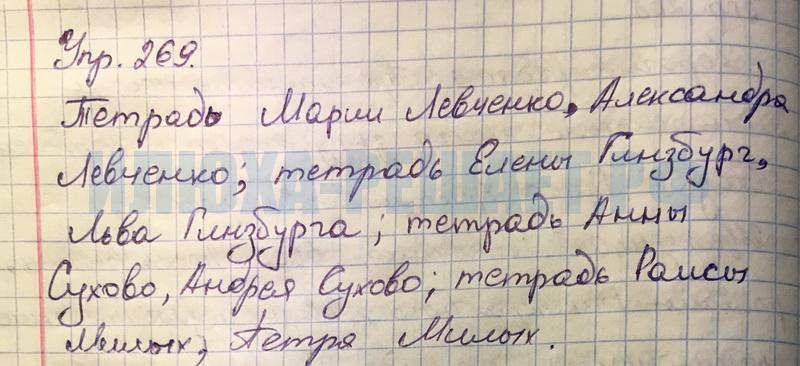 Упр. 269.
Тетрадь Марии Левченко, Александра
Левченко; тетрадь Елены Гинзбург,
Льва Гинзбурга; тетрадь Анны
Сухово, Андрея Сухово; тетрадь Раисы
Милых, Петра Милых.
ИЛЮХА-РЕШАЕТ.РФ